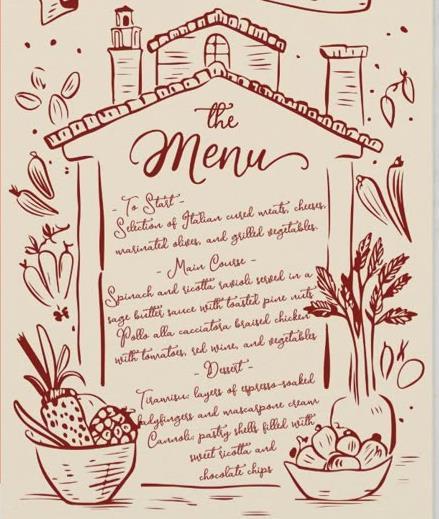 the
Menu
- To Start -
Selection of Italian cured meats, cheeses,
marinated olives, and grilled vegetables.
- Main Course -
Spinach and ricotta ravioli served in a
sage butter sauce with toasted pine nuts
Pollo alla cacciatora: braised chicken
with tomatoes, red wine, and vegetables
- Dessert -
Tiramisu: layers of espresso-soaked
ladyfingers and mascarpone cream
Cannoli: pastry shells filled with
sweet ricotta and
chocolate chips